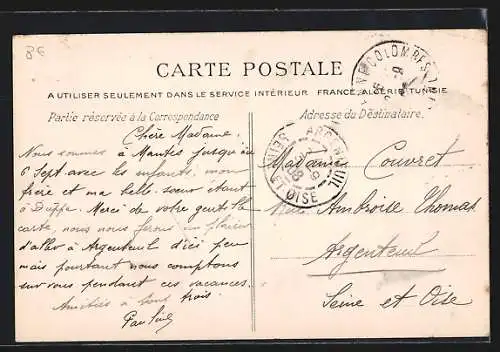 86
CARTE POSTALE
A UTILISER SEULEMENT DANS LE SERVICE INTÉRIEUR FRANCE, ALGÉRIE, TUNISIE
Partie réservée à la Correspondance
Adresse du Déstinataire.
COLOMBES
ARGENTEUIL
SEINE ET OISE
Chère Madame.
Nous sommes à Mantes jusqu'au
6 Sept. avec les enfants, mon
frère et ma belle soeur étant
à Dieppe. Merci de votre gentille
carte, nous nous ferons un plaisir
d'aller à Argenteuil d'ici peu
mais pourtant nous comptons
sur vous pendant ces vacances.
Amitiés à tous trois.
Pauline
Madame Couvret
Ambroise Thomas
Argenteuil
Seine et Oise